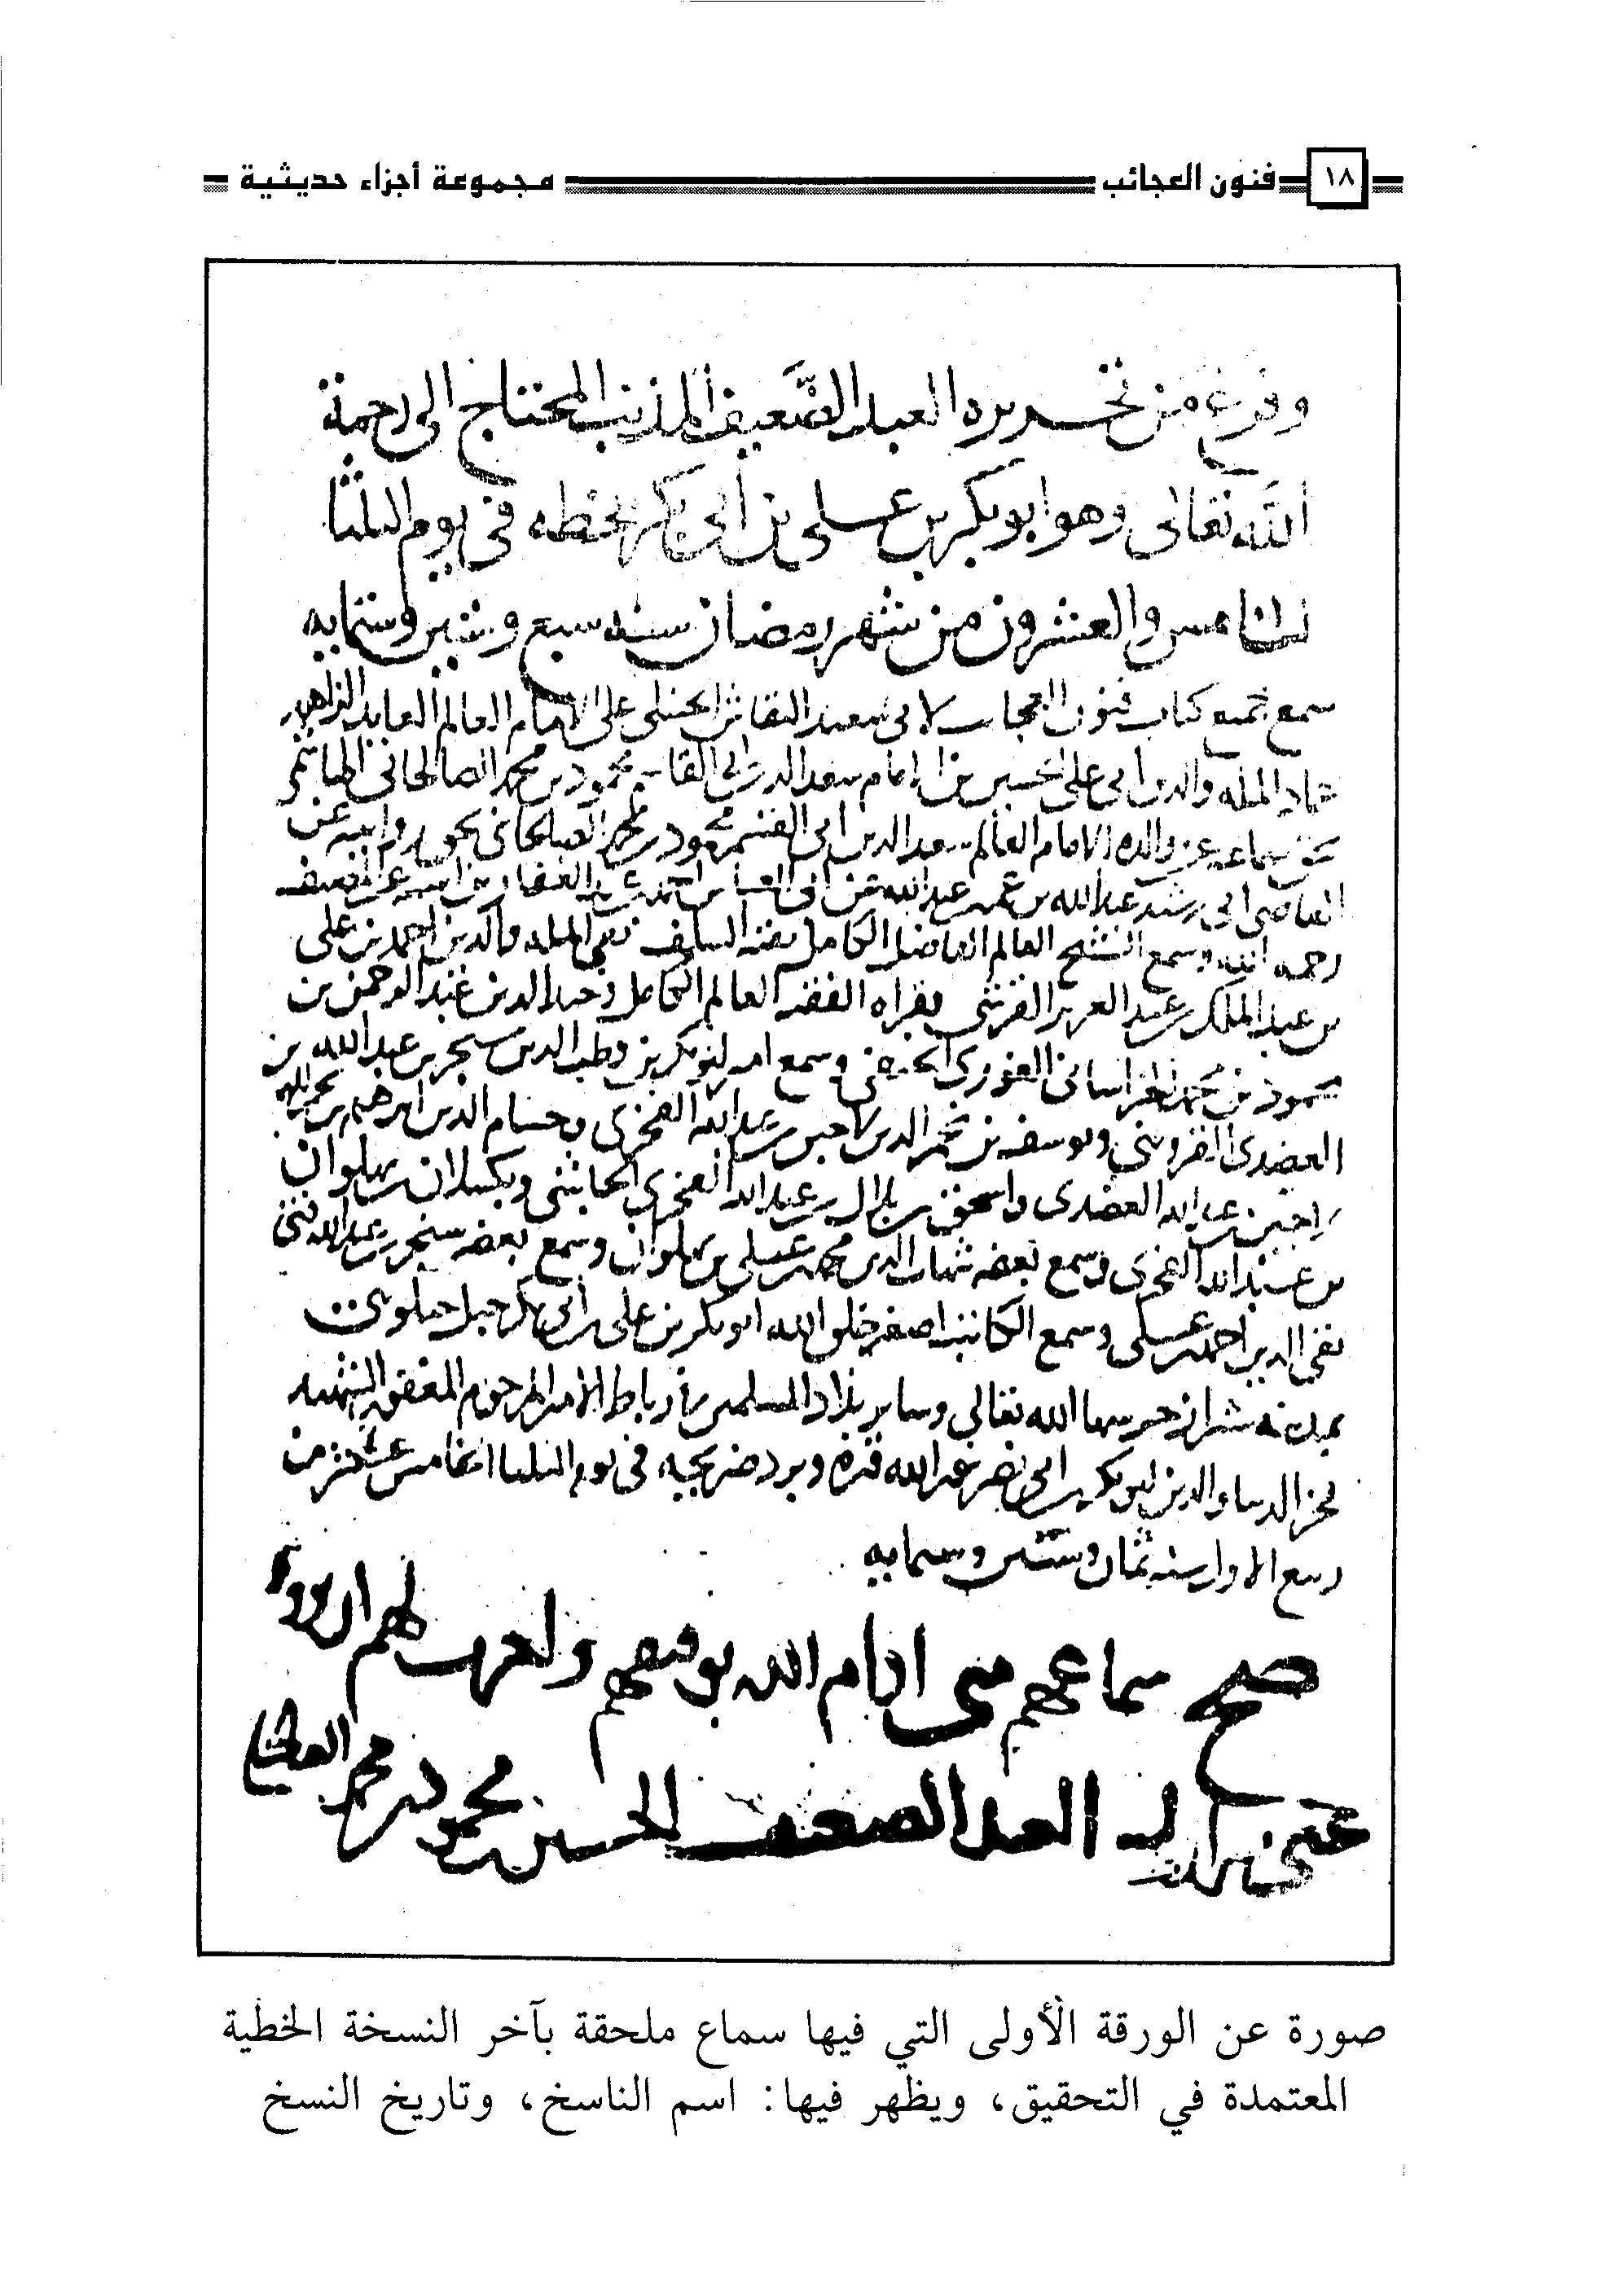 ١٨ فنون العجائب مجموعة أجزاء حديثية
وفرغ من تحريره العبد الضعيف المذنب المحتاج الى رحمة
الله تعالى وهو ابو بكر بن على بن أبى بكر بخطه فى يوم الثلثا
الخامس والعشرون من شهر رمضان سنه سبع وستين وستمايه
سمع جميع كتاب فنون العجايب لابى سعيد النقاش الحنبلى على الامام العالم العابد الزاهد
عماد المله والدين ابى على الحسين بن الامام سعد الدين ابى القاسم محمود بن محمد الصالحانى
بحق سماعه عن والده الامام العالم سعد الدين ابى القسم محمود بن محمد الصالحانى بحق روايته عن
القاضى ابى رشيد عبد الله بن عمر بن عبد الله عن ابى العباس احمد بن عبد الغفار بن عن المصنف
رحمه الله وسمع الشيخ العالم الفاضل الكامل بقية السلف تقى المله والدين احمد بن على
بن عبد الملك بن عبد العزيز القرشى بقراه الفقيه العالم الكامل وحيد الدين عبد الرحمن بن
محمود بن محمد الخراسانى الغورى الحنفى وسمع ابو بكر بن قطب الدين سنجر بن عبد الله بن
العضدى القزوينى ويوسف بن نجم الدين لاجين بن عبد الله الفخرى وحسام الدين ابرهيم بن
لاجين بن عبد الله العضدى واسحق بن بلال بن عبد الله الفخرى وبكلان بن بهلوان
بن عبد الله الفخرى وسمع بعضه شهاب الدين محمد بن على بن بهلوان وسمع بعضه سنجر بن عبد الله فتى
تقى الدين احمد بن على وسمع الكاتب اصغر خلق الله ابو بكر بن على بن أبى بكر
بمدينه شيراز حرسها الله تعالى وساير بلاد المسلمين فى رباط الامير المرحوم المغفور الشهيد
فخر الدنيا والدين ابو بكر بن ابى نصر نور الله قبره وبرد ضريحه فى يوم الثلثا الخامس عشر من
ربيع الاول سنه ثمان وستين وستمايه
صح سماعهم منى ادام الله توفيقهم واجزت لهم ان يرووا
عنى العبد الضعيف الحسين بن محمود بن محمد الصالحانى
صورة عن الورقة الأولى التي فيها سماع ملحقة بآخر النسخة الخطية
المعتمدة في التحقيق، ويظهر فيها: اسم الناسخ، وتاريخ النسخ